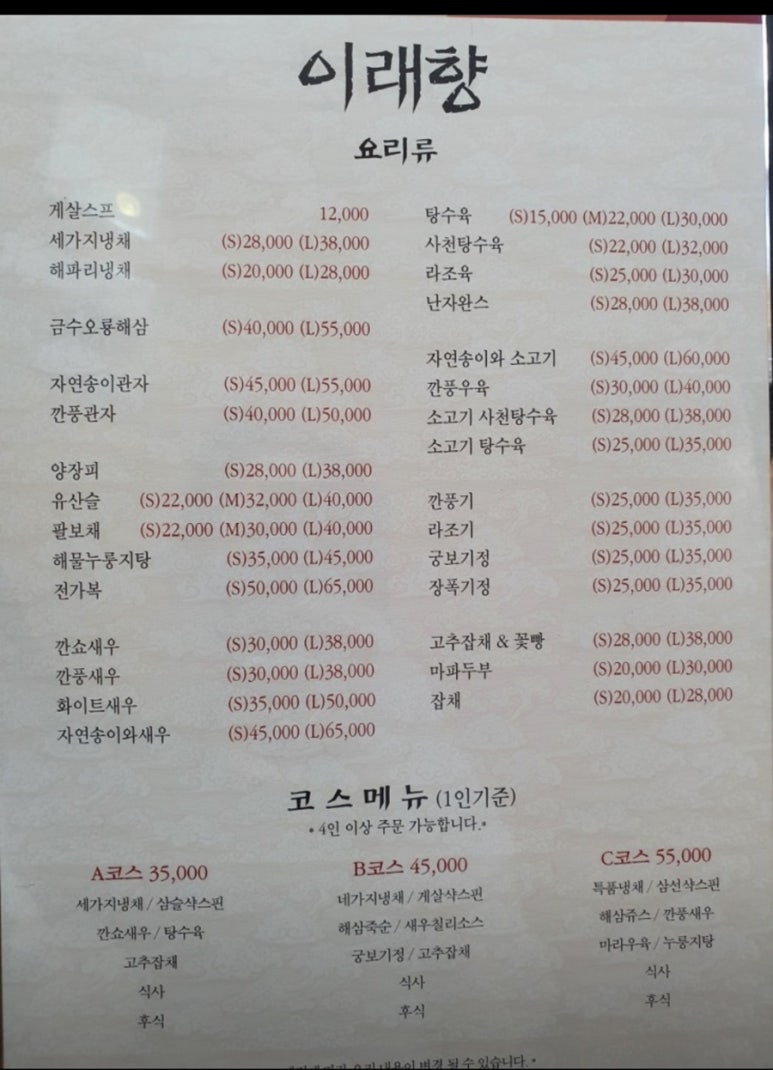 이래향
요리류
게살스프 12,000
세가지냉채 (S)28,000 (L)38,000
해파리냉채 (S)20,000 (L)28,000
금수오룡해삼 (S)40,000 (L)55,000
자연송이관자 (S)45,000 (L)55,000
깐풍관자 (S)40,000 (L)50,000
양장피 (S)28,000 (L)38,000
유산슬 (S)22,000 (M)32,000 (L)40,000
팔보채 (S)22,000 (M)30,000 (L)40,000
해물누룽지탕 (S)35,000 (L)45,000
전가복 (S)50,000 (L)65,000
깐쇼새우 (S)30,000 (L)38,000
깐풍새우 (S)30,000 (L)38,000
화이트새우 (S)35,000 (L)50,000
자연송이와새우 (S)45,000 (L)65,000
탕수육 (S)15,000 (M)22,000 (L)30,000
사천탕수육 (S)22,000 (L)32,000
라조육 (S)25,000 (L)30,000
난자완스 (S)28,000 (L)38,000
자연송이와 소고기 (S)45,000 (L)60,000
깐풍우육 (S)30,000 (L)40,000
소고기 사천탕수육 (S)28,000 (L)38,000
소고기 탕수육 (S)25,000 (L)35,000
깐풍기 (S)25,000 (L)35,000
라조기 (S)25,000 (L)35,000
궁보기정 (S)25,000 (L)35,000
장폭기정 (S)25,000 (L)35,000
고추잡채 & 꽃빵 (S)28,000 (L)38,000
마파두부 (S)20,000 (L)30,000
잡채 (S)20,000 (L)28,000
코스메뉴 (1인기준)
* 4인 이상 주문 가능합니다.*
A코스 35,000
세가지냉채 / 삼슬샥스핀
깐쇼새우 / 탕수육
고추잡채
식사
후식
B코스 45,000
네가지냉채 / 게살샥스핀
해삼죽순 / 새우칠리소스
궁보기정 / 고추잡채
식사
후식
C코스 55,000
특품냉채 / 삼선샥스핀
해삼쥬스 / 깐풍새우
마라우육 / 누룽지탕
식사
후식
요리내용이 변경 될 수 있습니다. *